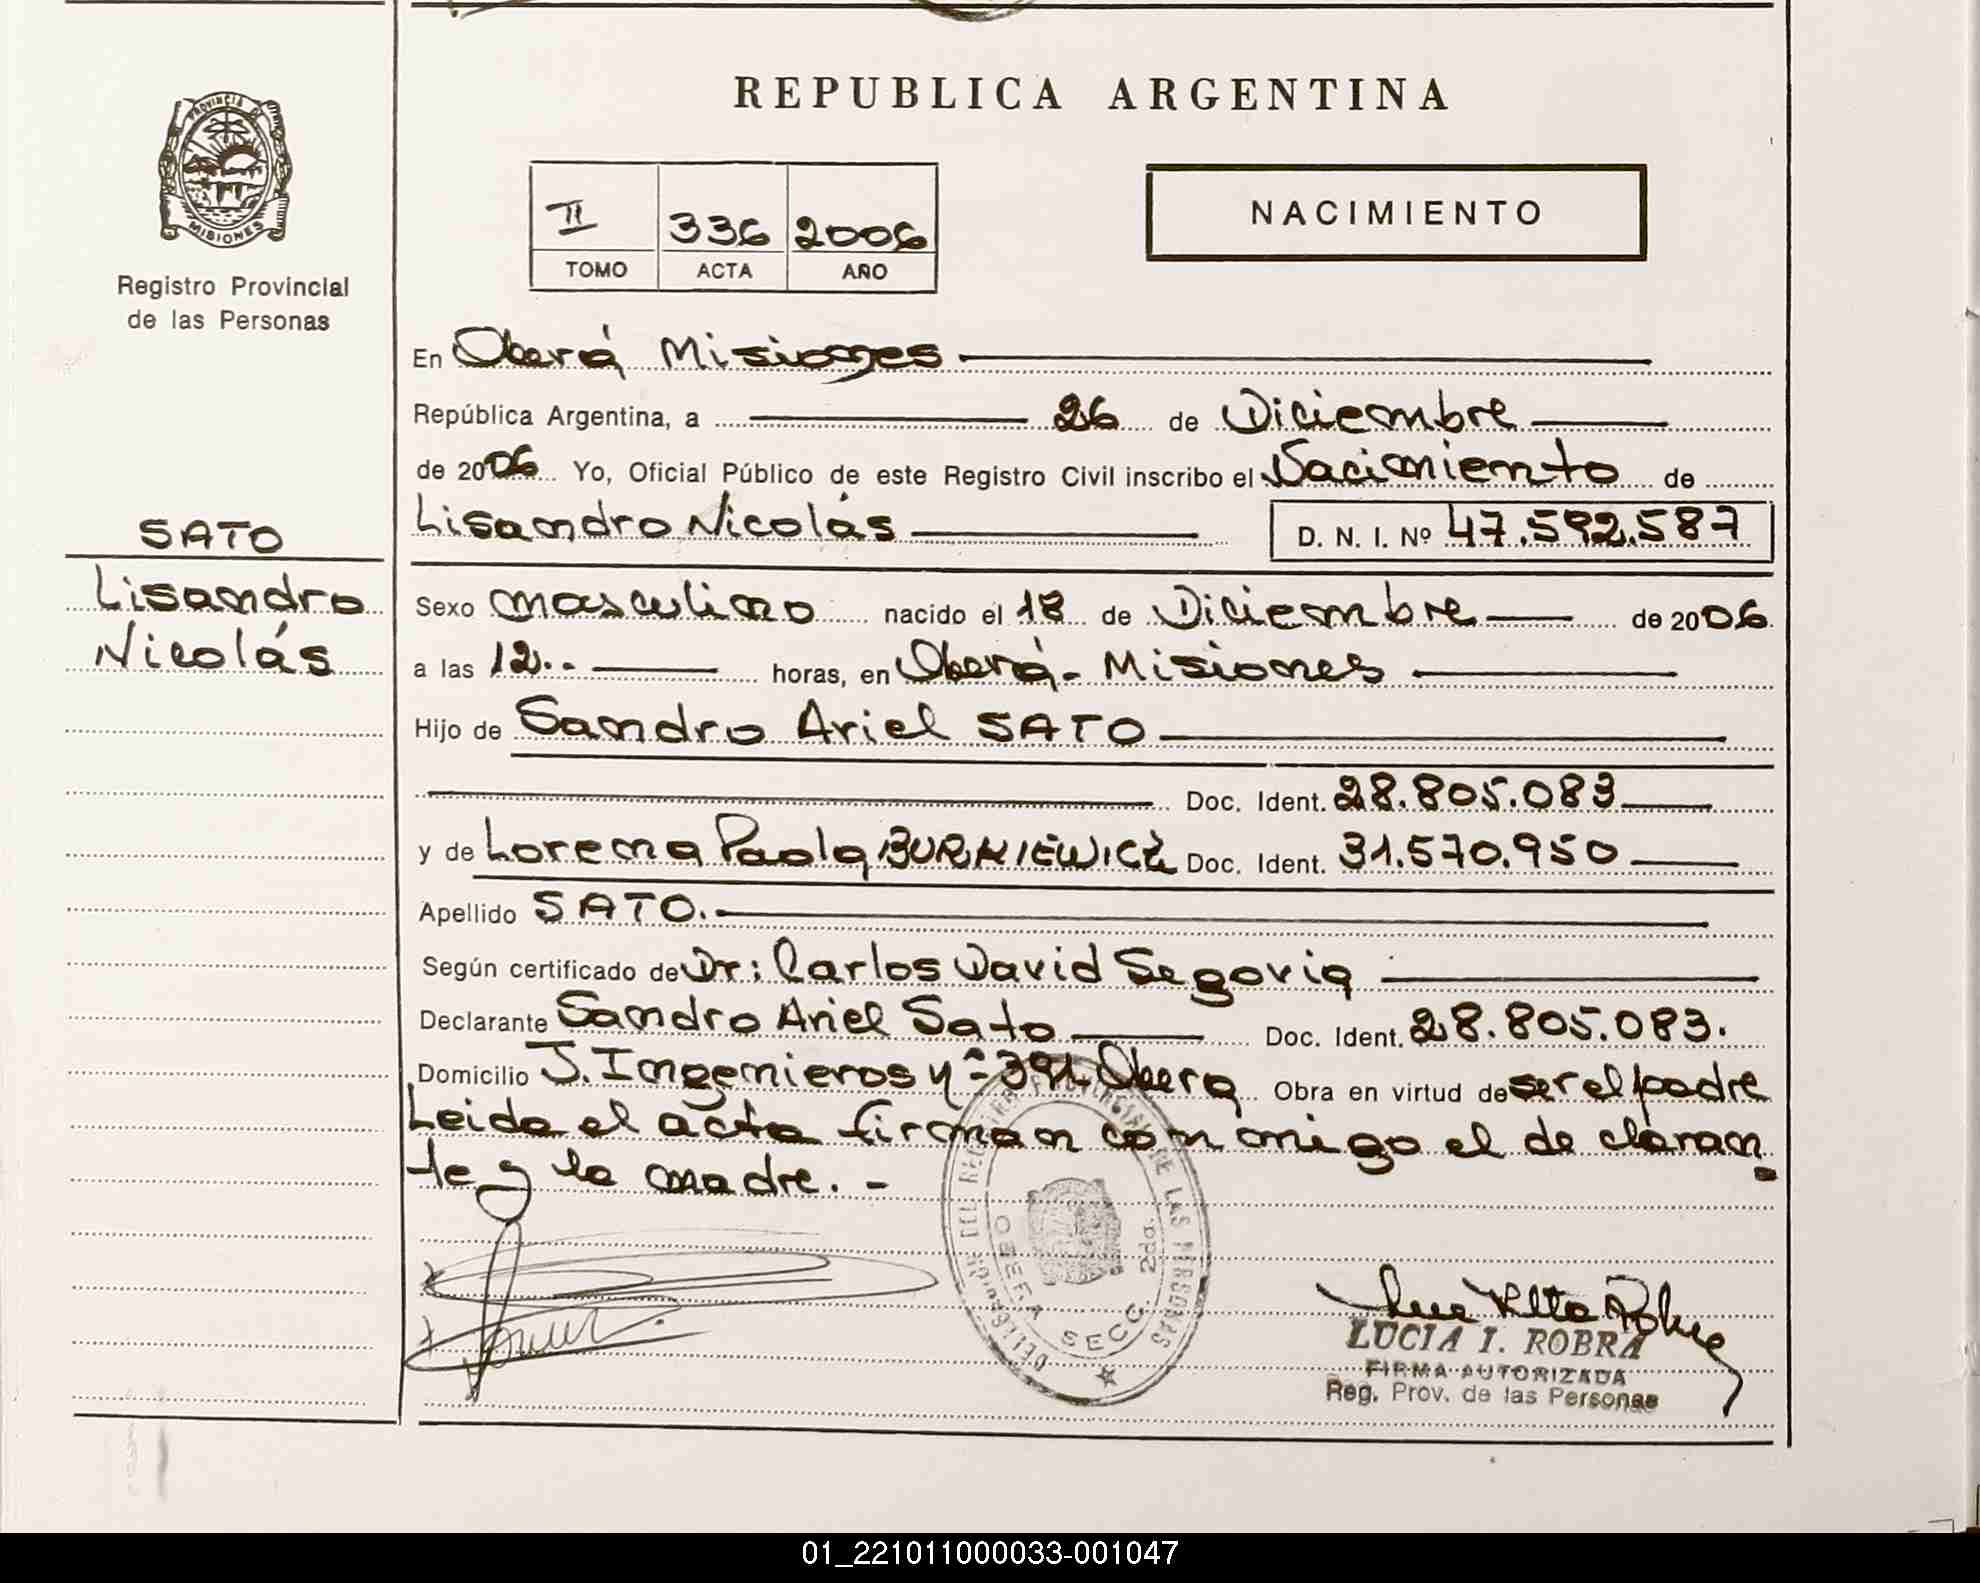 REPUBLICA ARGENTINA
PROVINCIA DE MISIONES
Registro Provincial
de las Personas
II 336 2006
TOMO ACTA AÑO
NACIMIENTO
En Oberá Misiones
República Argentina, a 26 de Diciembre
de 2006 Yo, Oficial Público de este Registro Civil inscribo el Nacimiento de
Lisandro Nicolás D. N. I. Nº 47.592.587
SATO
Lisandro
Nicolás
Sexo masculino nacido el 18 de Diciembre de 2006
a las 12.. horas, en Oberá - Misiones
Hijo de Sandro Ariel SATO
Doc. Ident. 28.805.083
y de Lorena Paola BURNIEWICZ Doc. Ident. 31.570.950
Apellido SATO.
Según certificado de Dr: Carlos David Segovia
Declarante Sandro Ariel Sato Doc. Ident. 28.805.083.
Domicilio J. Ingenieros nº 391 Obera Obra en virtud de ser el padre
Leida el acta firman con migo el de claran
te y la madre. -
DEL REGISTRO PROVINCIAL DE LAS PERSONAS
SECC. 2da.
LUCIA I. ROBRA
FIRMA AUTORIZADA
Reg. Prov. de las Personas
01_221011000033-001047